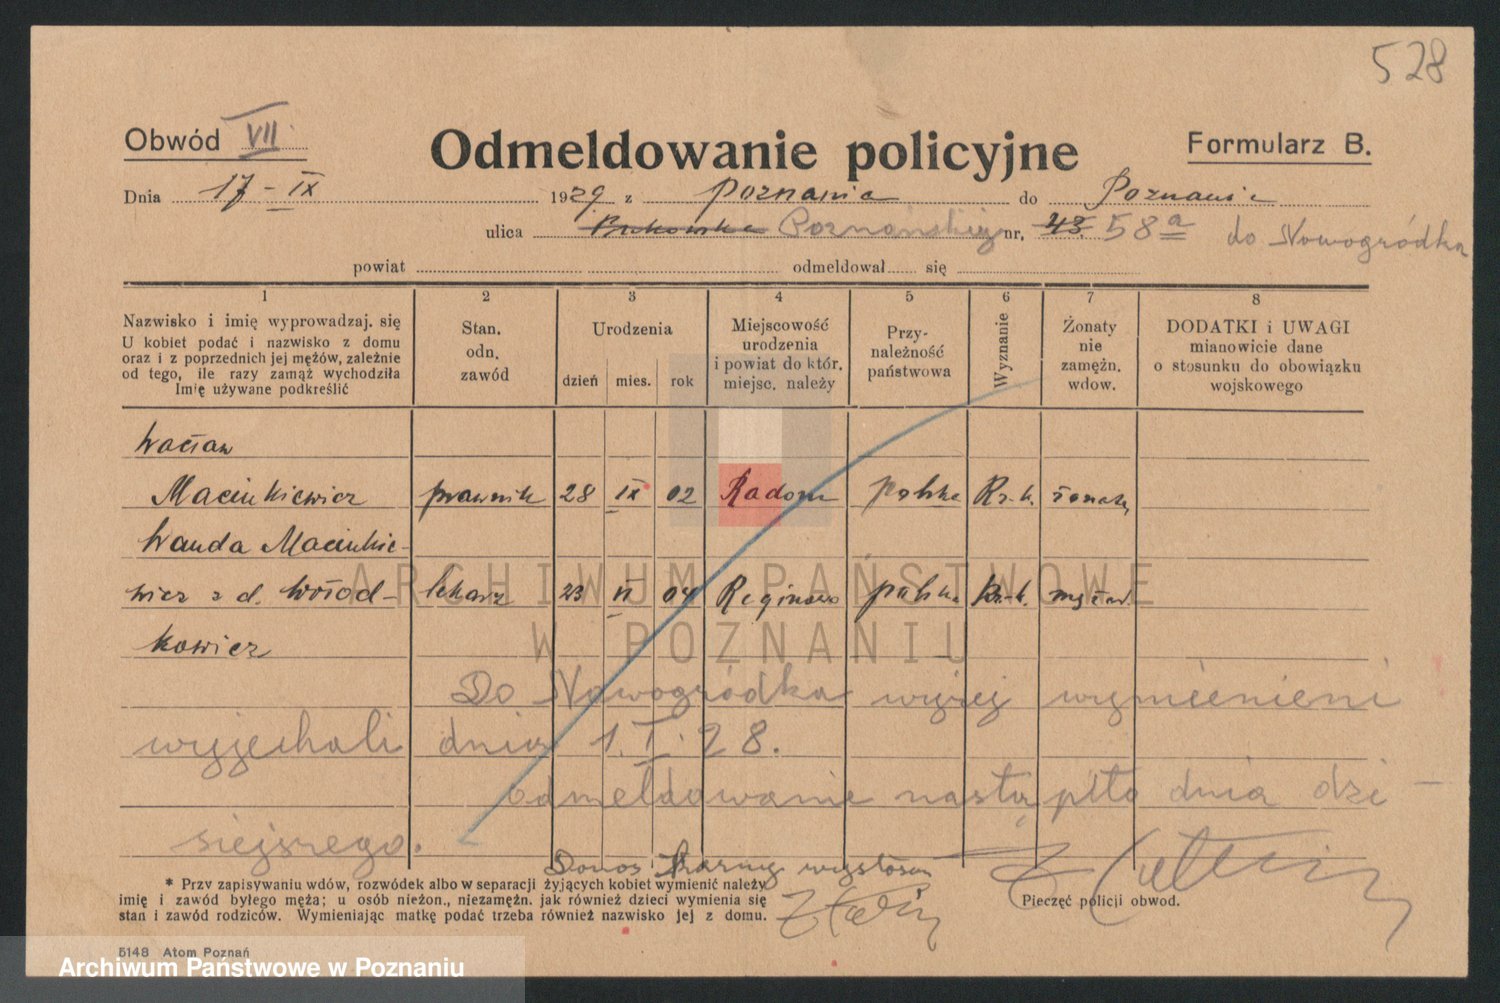 528
Obwód VII
Odmeldowanie policyjne
Formularz B.
Dnia 17-IX 1929 z Poznania do Poznania
ulica Bukowska Poznańskiej nr. 43 58a do Nowogródka
powiat odmeldował się
1 2 3 4 5 6 7 8
Nazwisko i imię wyprowadzaj. się
U kobiet podać i nazwisko z domu
oraz i z poprzednich jej mężów, zależnie
od tego, ile razy zamąż wychodziła
Imię używane podkreślić
Stan.
odn.
zawód
Urodzenia
dzień mies. rok
Miejscowość
urodzenia
i powiat do któr.
miejsc. należy
Przy-
należność
państwowa
Wyznanie
Żonaty
nie
zamężn.
wdow.
DODATKI i UWAGI
mianowicie dane
o stosunku do obowiązku
wojskowego
Wacław
Macinkiewicz prawnik 28 IX 02 Radom polska Rz-k. żonaty
Wanda Macinkie-
wicz z d. Wołod- lekarz 23 VI 04 polska Rz-k.
kowicz
ARCHIWUM PAŃSTWOWE
W POZNANIU
Do Nowogródka wyżej wymienieni
wyjechali dnia 1.I.28.
odmeldowanie nastąpiło dnia dzi-
siejszego.
Donos karny wystosow
* Przy zapisywaniu wdów, rozwódek albo w separacji żyjących kobiet wymienić należy
imię i zawód byłego męża; u osób nieżon., niezamężn. jak również dzieci wymienia się
stan i zawód rodziców. Wymieniając matkę podać trzeba również nazwisko jej z domu.
Pieczęć policji obwod.
5148 Atom Poznań
Archiwum Państwowe w Poznaniu